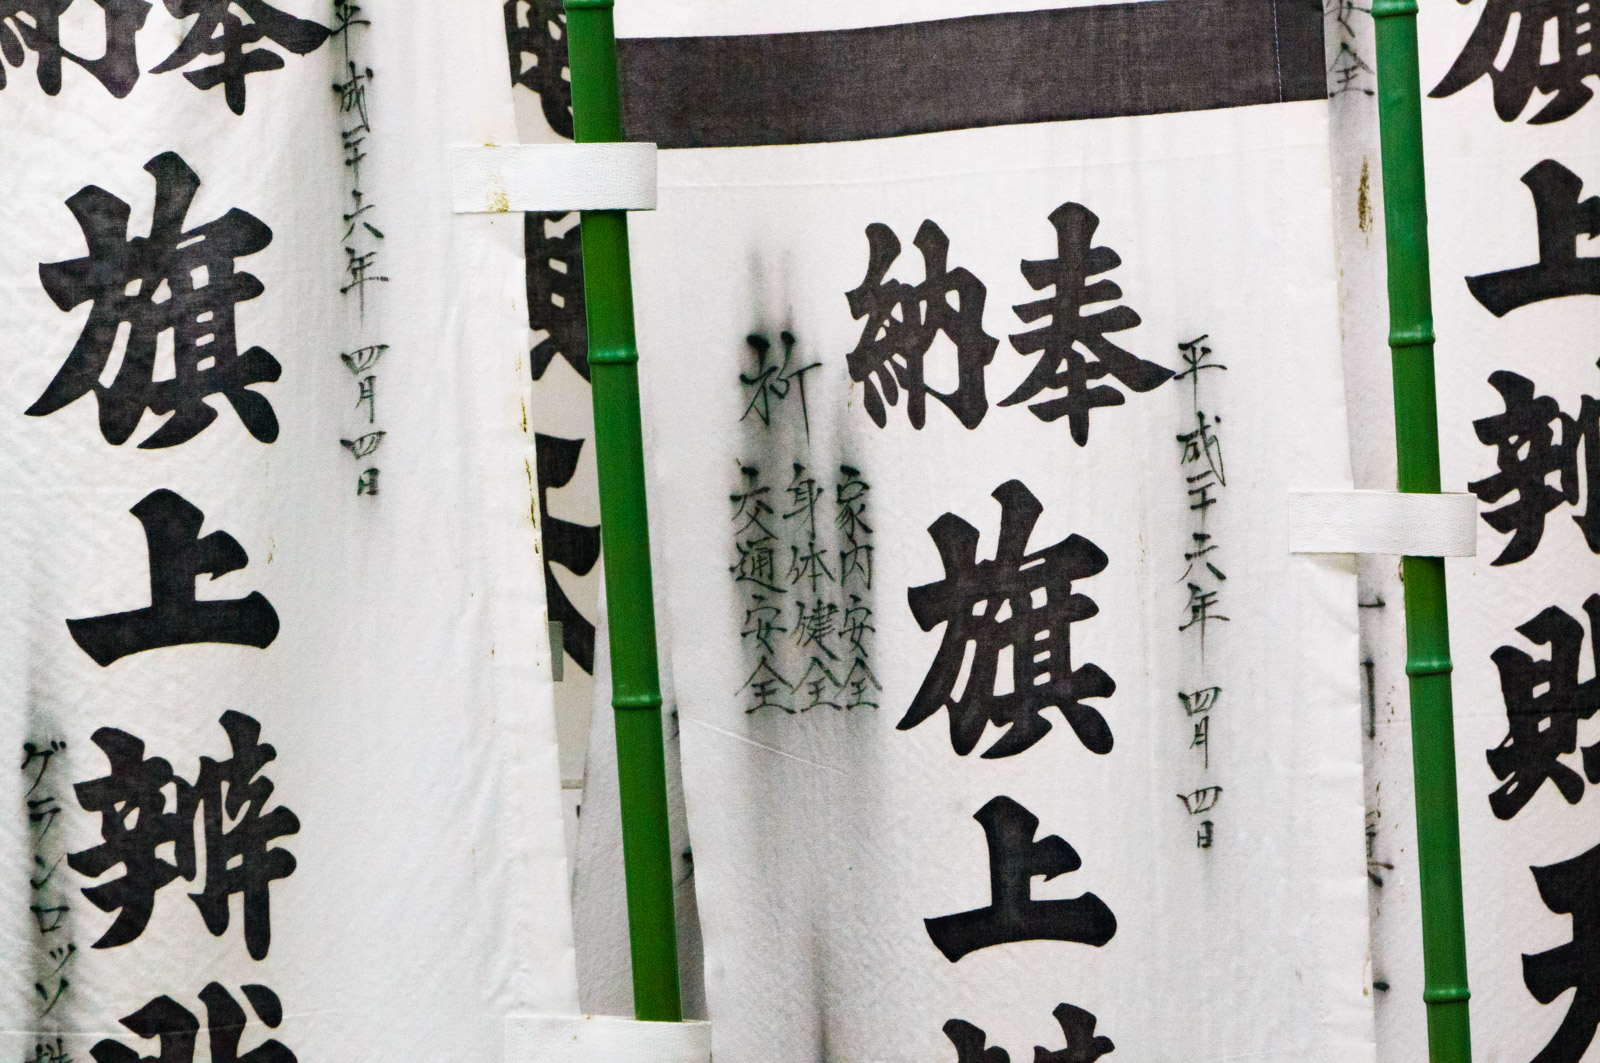 旗上辨財天
安全
平成二十六年 四月四日
奉納
旗上
祈
家内安全
身体健全
交通安全
財天
平成二十六年 四月四日
奉納
旗上辨財
グランロッソ